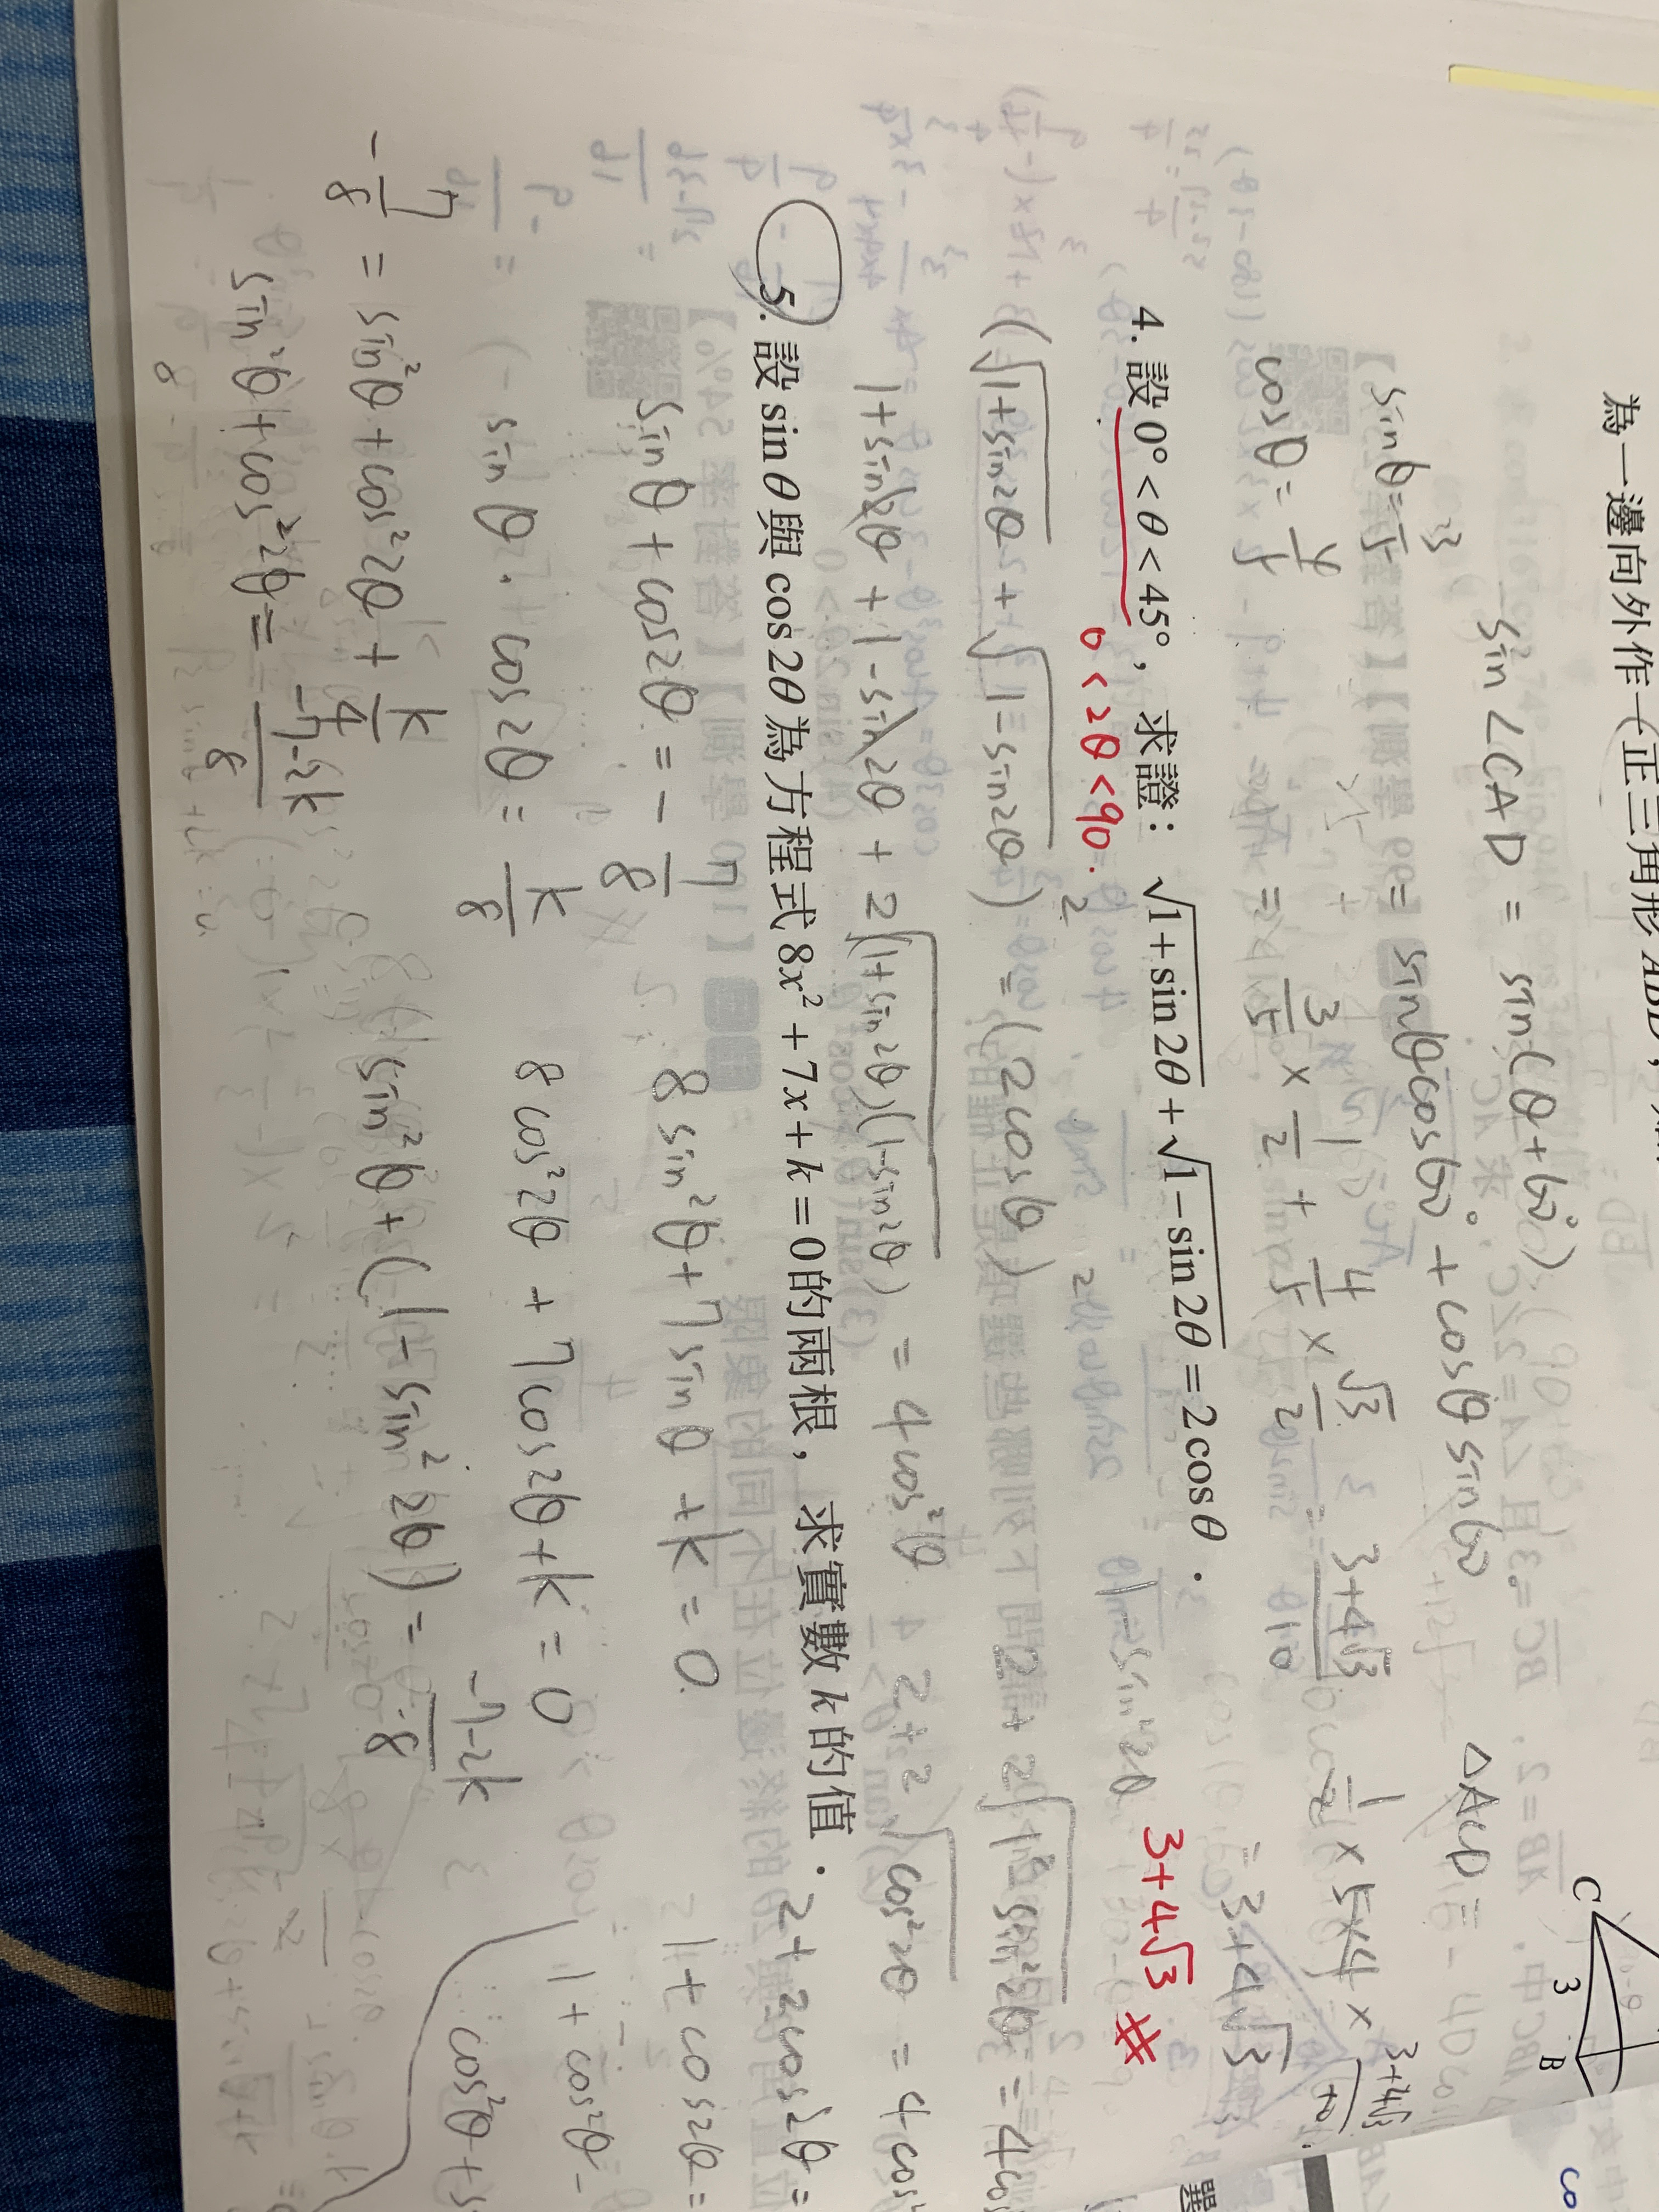 為一邊向外作一正三角形 ABD，
sin∠CAD = sin(θ+60°)
sinθ = 3/5
= sinθcos60° + cosθsin60
cosθ = 4/5
= 3/5 × 1/2 + 4/5 × √3/2 = (3+4√3)/10
△ACD =
1/2 × 5 × 4 × (3+4√3)/10
= 3+4√3
C
3
B
4. 設 0° < θ < 45°，求證：√(1+sin2θ) + √(1−sin2θ) = 2cosθ．
0 < 2θ < 90.
3+4√3 #
(√(1+sin2θ) + √(1−sin2θ))² = (2cosθ)²
1+sin2θ + 1−sin2θ + 2√((1+sin2θ)(1−sin2θ)) = 4cos²θ
2 + 2√(1−sin²2θ) = 4cos
2 + 2√(cos²2θ) = 4cos²
5. 設 sinθ 與 cos2θ 為方程式 8x² + 7x + k = 0 的兩根，求實數 k 的值．
2 + 2cos2θ =
sinθ + cos2θ = − 7/8
8 sin²θ + 7 sinθ + k = 0
1 + cos2θ =
sinθ · cos2θ = k/8
8 cos²2θ + 7 cos2θ + k = 0
1 + cos²θ −
− 7/8 = sin²θ + cos²2θ + k/4
sin²θ + (1 − sin²2θ) = (−7−2k)/8
cos²θ +
sin²θ + cos²2θ = (−7−2k)/8